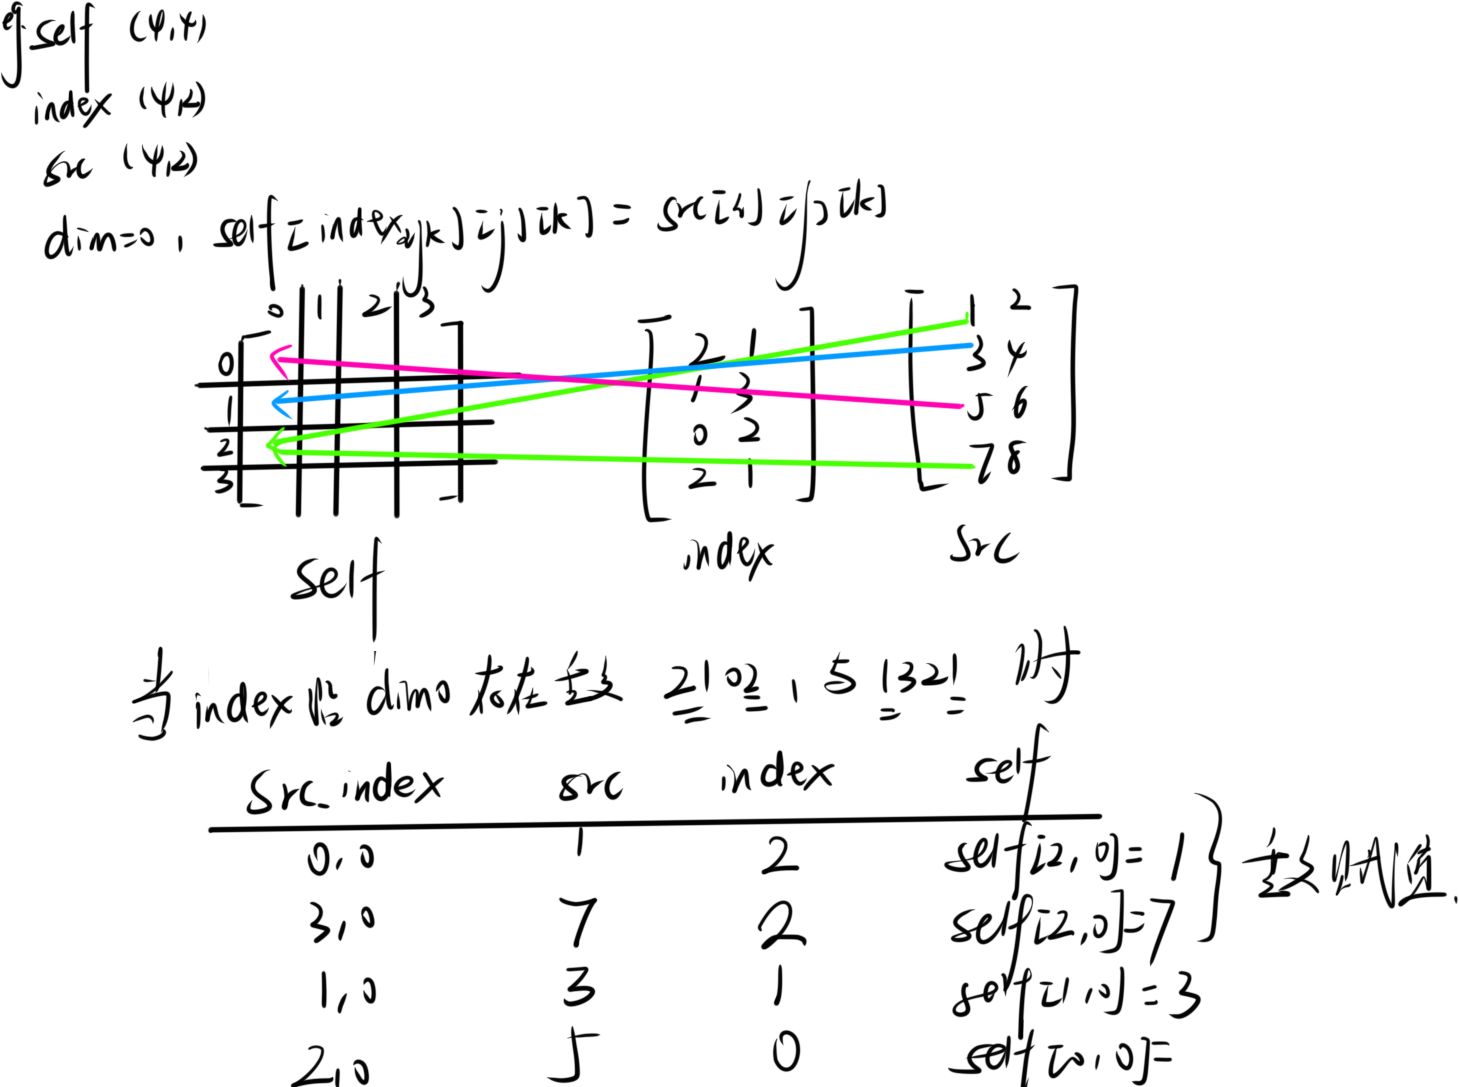 eg. self (4,4)
index (4,2)
src (4,2)
dim=0, self[index ijk][j][k] = src[i][j][k]
0 1 2 3
0
1
2
3
2 1
1 3
0 2
2 1
1 2
3 4
5 6
7 8
self index src
当index沿dim0存在重复 2102, 与 1321 时
src_index src index self
0,0 1 2 self[2,0]=1
3,0 7 2 self[2,0]=7
重复赋值.
1,0 3 1 self[1,0]=3
2,0 5 0 self[0,0]=